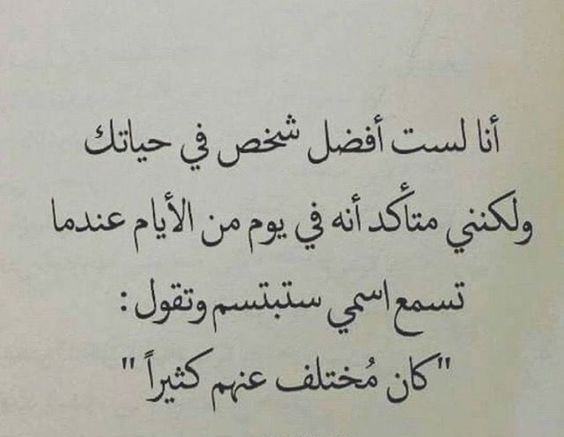 أنا لست أفضل شخص في حياتك
ولكنني متأكد أنه في يوم من الأيام عندما
تسمع اسمي ستبتسم وتقول :
"كان مُختلف عنهم كثيراً "